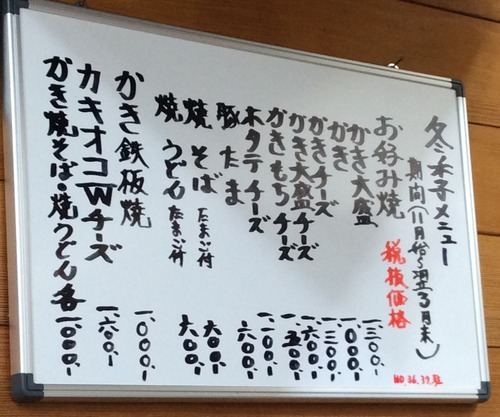 冬季メニュー
期間(11月始〜翌3月末)
税抜価格
お好み焼
かき大盛 一、三〇〇、-
かき 一、〇〇〇、-
かきチーズ 一、三〇〇、-
かき大盛チーズ 一、六〇〇、-
かきもちチーズ 一、五〇〇、-
ホタテチーズ 一、一〇〇、-
豚たま
焼そば たまご付 六〇〇、-
焼うどん たまご付 六〇〇、-
かき鉄板焼 一、〇〇〇、-
カキオコWチーズ 一、六〇〇、-
かき焼そば・焼うどん各 一、〇〇〇、-